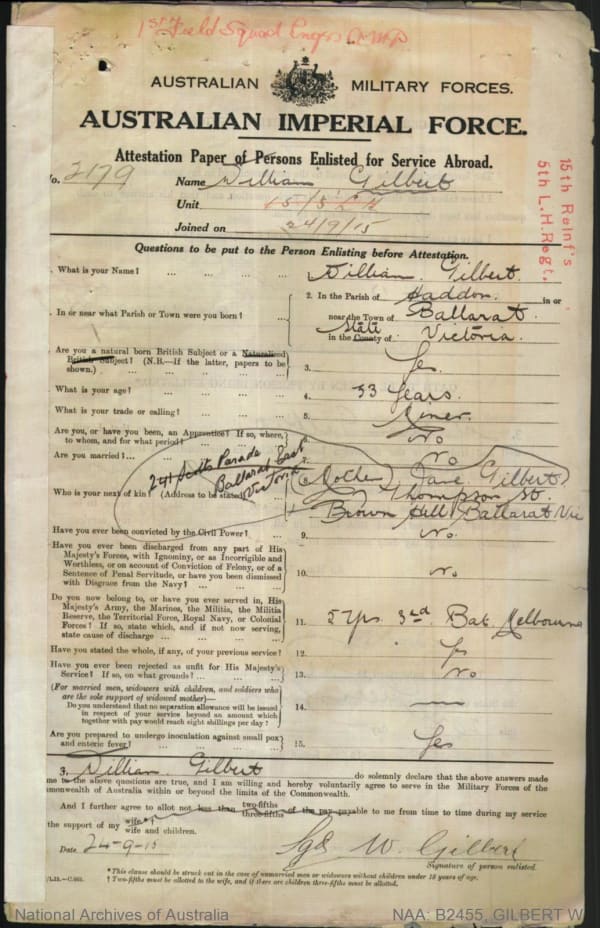 1st Field Squad Engrs
AUSTRALIAN MILITARY FORCES.
AUSTRALIAN IMPERIAL FORCE.
Attestation Paper of Persons Enlisted for Service Abroad.
No. 2179 Name William Gilbert
Unit 15/5 L H
Joined on 24/9/15
15th Reinf's
5th L.H. Regt.
Questions to be put to the Person Enlisting before Attestation.
What is your Name? ... ... ... ... William Gilbert
In or near what Parish or Town were you born? ...
2. In the Parish of Haddon in or
near the Town of Ballarat
State
in the County of Victoria.
Are you a natural born British Subject or a Naturalised
British Subject? (N.B.—If the latter, papers to be
shown.) ... ... ... ... 3. Yes
What is your age? ... ... ... 4. 33 Years
What is your trade or calling? ... ... ... 5. Miner.
Are you, or have you been, an Apprentice? If so, where,
to whom, and for what period? ... ... 6. No
Are you married?... ... ... ... 7. No
241 Scotts Parade
Ballarat East
Victoria
Who is your next of kin? (Address to be stated)
(Mother) Jane Gilbert
Thompson St.
Brown Hill Ballarat Vic
Have you ever been convicted by the Civil Power? ... 9. No.
Have you ever been discharged from any part of His
Majesty's Forces, with Ignominy, or as Incorrigible and
Worthless, or on account of Conviction of Felony, or of a
Sentence of Penal Servitude, or have you been dismissed
with Disgrace from the Navy? ... ... ... 10. No
Do you now belong to, or have you ever served in, His
Majesty's Army, the Marines, the Militia, the Militia
Reserve, the Territorial Force, Royal Navy, or Colonial
Forces? If so, state which, and if not now serving,
state cause of discharge ... ... ... 11. 5 Yrs 3rd Bat. Melbourne
Have you stated the whole, if any, of your previous service? 12. Yes
Have you ever been rejected as unfit for His Majesty's
Service? If so, on what grounds? ... ... 13. No
(For married men, widowers with children, and soldiers who
are the sole support of widowed mother)—
Do you understand that no separation allowance will be issued
in respect of your service beyond an amount which
together with pay would reach eight shillings per day? 14. —
Are you prepared to undergo inoculation against small pox
and enteric fever? ... ... ... ... 15. Yes
I, William Gilbert do solemnly declare that the above answers made
me to the above questions are true, and I am willing and hereby voluntarily agree to serve in the Military Forces of the
Commonwealth of Australia within or beyond the limits of the Commonwealth.
And I further agree to allot not less than two-fifths
three-fifths of the pay payable to me from time to time during my service
the support of my wife
wife and children.
Date 24-9-15 Sgd W. Gilbert
Signature of person enlisted.
*This clause should be struck out in the case of unmarried men or widowers without children under 18 years of age.
† Two-fifths must be allotted to the wife, and if there are children three-fifths must be allotted.
National Archives of Australia NAA: B2455, GILBERT W